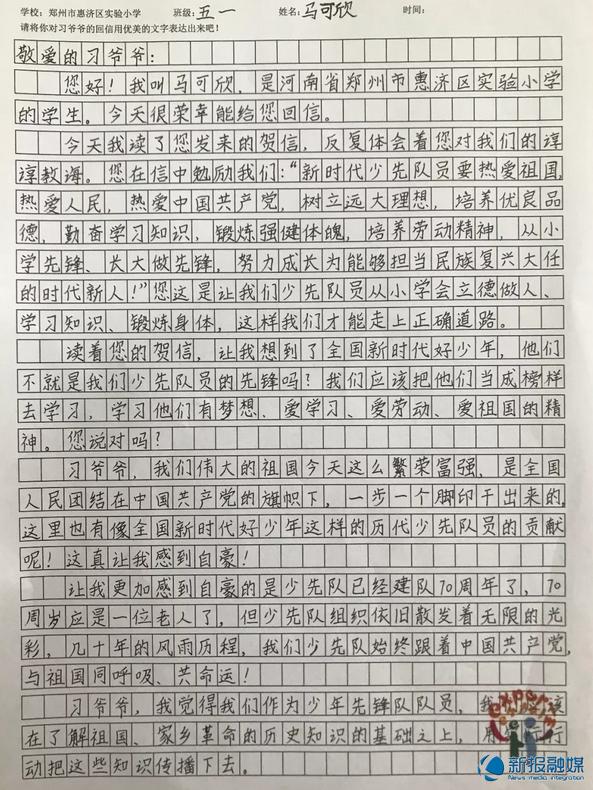 学校：郑州市惠济区实验小学 班级：五一 姓名：马可欣 时间：
请将你对习爷爷的回信用优美的文字表达出来吧！
敬爱的习爷爷：
您好！我叫马可欣，是河南省郑州市惠济区实验小学
的学生。今天很荣幸能给您回信。
今天我读了您发来的贺信，反复体会着您对我们的谆
谆教诲。您在信中勉励我们：“新时代少先队员要热爱祖国，
热爱人民，热爱中国共产党，树立远大理想，培养优良品
德，勤奋学习知识，锻炼强健体魄，培养劳动精神，从小
学先锋、长大做先锋，努力成长为能够担当民族复兴大任
的时代新人！”您这是让我们少先队员从小学会立德做人、
学习知识、锻炼身体，这样我们才能走上正确道路。
读着您的贺信，让我想到了全国新时代好少年，他们
不就是我们少先队员的先锋吗？我们应该把他们当成榜样
去学习，学习他们有梦想、爱学习、爱劳动、爱祖国的精
神。您说对吗？
习爷爷，我们伟大的祖国今天这么繁荣富强，是全国
人民团结在中国共产党的旗帜下，一步一个脚印干出来的，
这里也有像全国新时代好少年这样的历代少先队员的贡献
呢！这真让我感到自豪！
让我更加感到自豪的是少先队已经建队70周年了，70
周岁应是一位老人了，但少先队组织依旧散发着无限的光
彩，几十年的风雨历程，我们少先队始终跟着中国共产党，
与祖国同呼吸、共命运！
习爷爷，我觉得我们作为少年先锋队队员，我 该
在了解祖国、家乡革命的历史知识的基础之上，用 行
动把这些知识传播下去。
新报融媒
News media integration